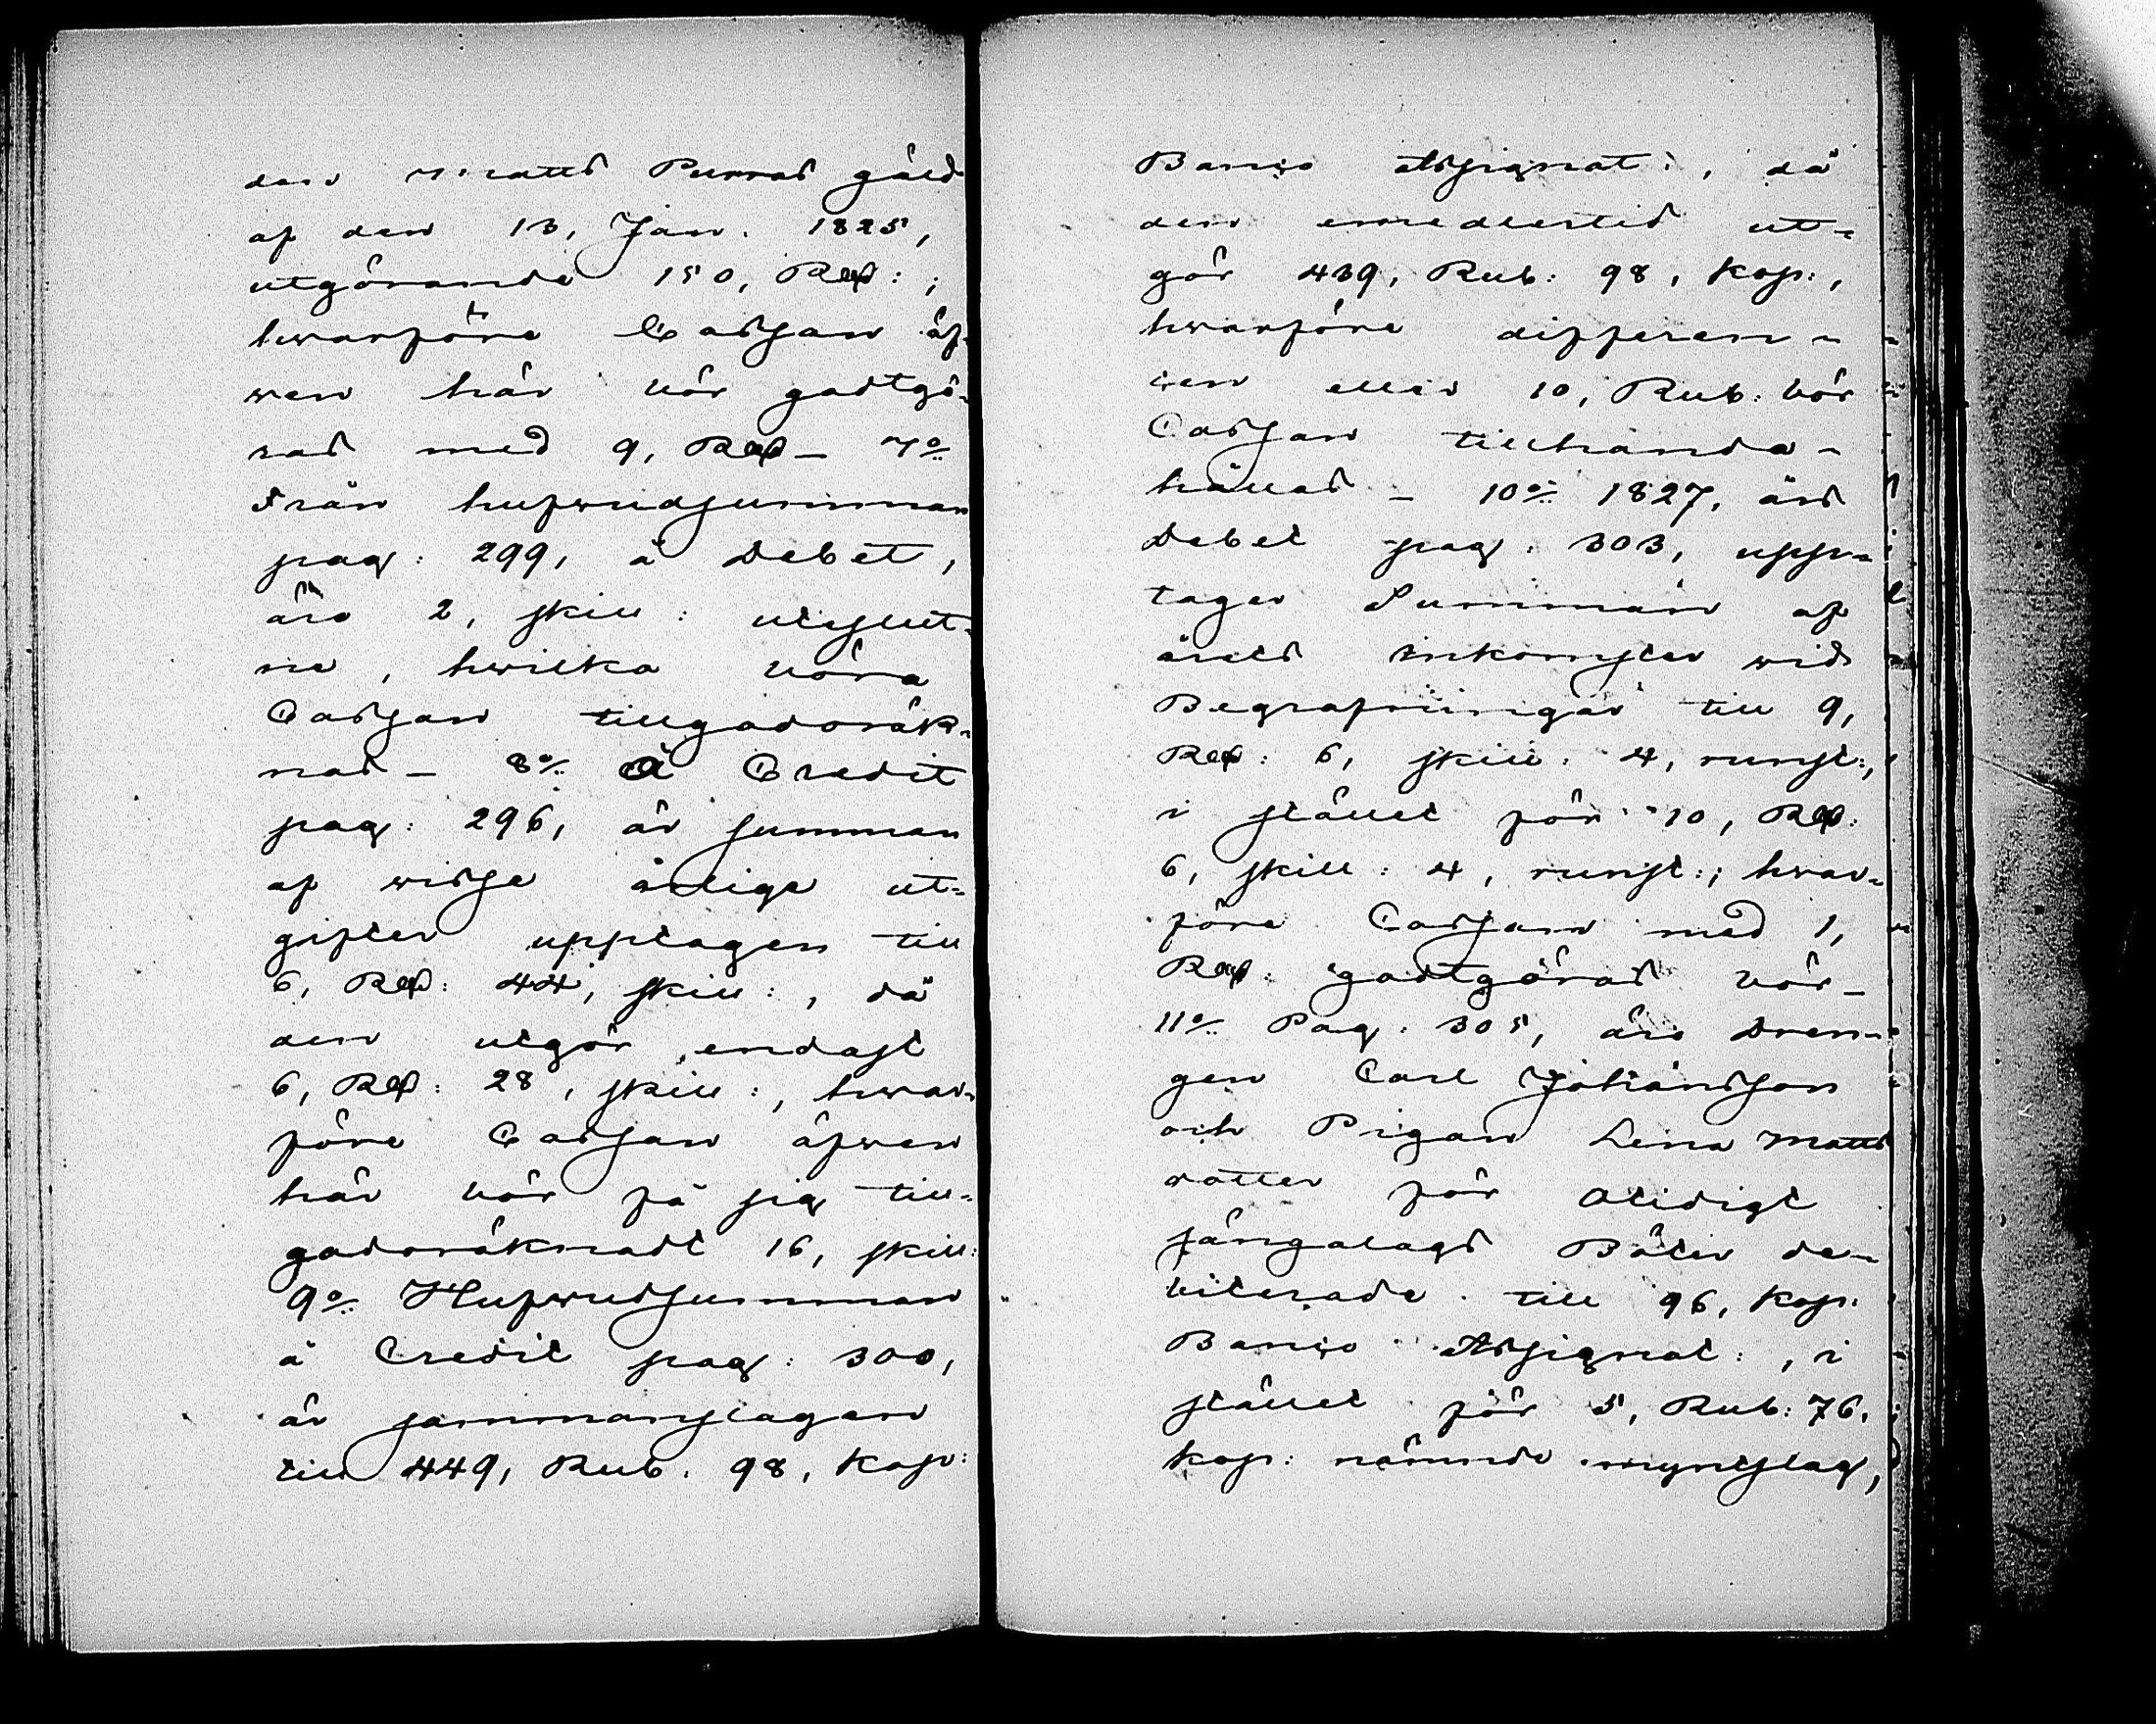 den Matts Purras gäld
af den 13, Jan. 1825,
utgörande 150, Rd: ;
hwarföre Cassan äf-
wen här bör godtgö-
ras med 9, Rd – 7o
Från hufwudsumman
pag: 299, å Debet,
äro 2, skill: uteslut-
ne, hwilka böra
Cassan tillgodoräk-
nas – 8o Å Credit
pag: 296, är summan
af wisse årlige ut-
gifter upptagen till
6, Rd: 44, skill:, då
den utgör endast
6, Rd: 28, skill:, hwar-
före Cassan äfwen
här bör få sig till-
godoräknadt 16, skill:
9o Hufwudsumman
å Credit pag: 300,
är sammanslagen
till 449, Rub: 98, kop:
Banco Assignat:, då
den emedlertid ut-
gör 439, Rub: 98, kop:,
hwarföre differen-
cen eller 10, Rub: bör
Cassan tillhanda-
hållas – 10o 1827, års
Debet pag. 303, upp-
tager Summan af
årets inkomster wid
Begrafningar till 9,
Rd: 6, skill: 4, runst:,
i stället för 10, Rd:
6, skill: 4, runst:; hwar-
före Cassan med 1,
Rd: godtgöras bör –
11o Pag. 305, äro Dren-
gen Carl Johansson
och Pigan Lena Matts
dotter för otidigt
sängalags Böter de-
biterade till 96, kop:
Banco Assignat:, i
stället för 5, Rub: 76,
kop: nämnde myntslag,